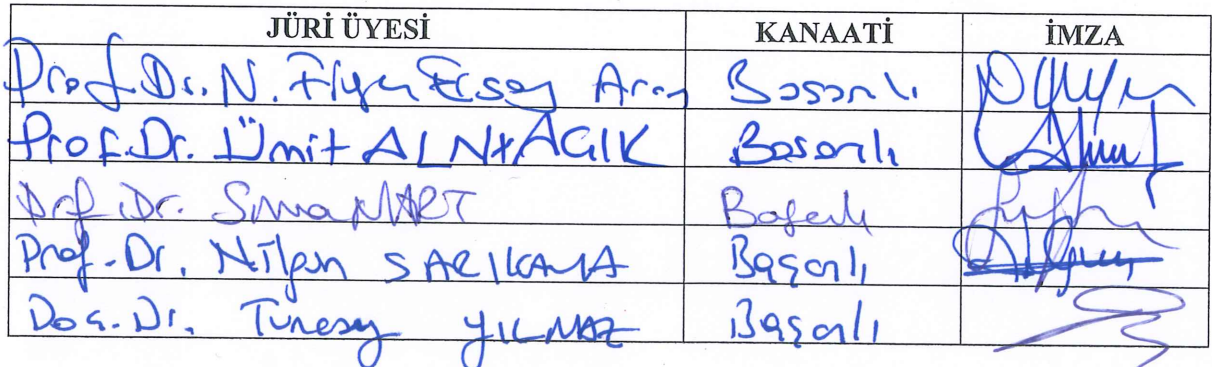 JÜRİ ÜYESİ KANAATİ İMZA
Prof. Dr. N. Ersoy Başarılı
Prof. Dr. Ümit ALNIAÇIK Başarılı
Prof. Dr. Başarılı
Prof. Dr. Nilgün SARIKAYA Başarılı
Doç. Dr. Tuncay YILMAZ Başarılı